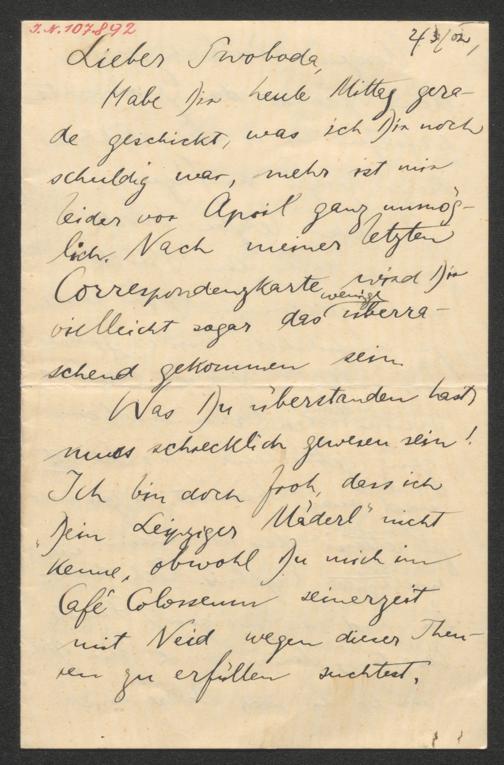 I.N. 107.892
Lieber Swoboda,
Habe Dir heute Mittag gera-
de geschickt, was ich Dir noch
schuldig war, mehr ist mir
leider vor April ganz unmög-
lich. Nach meiner letzten
Correspondenzkarte wird Dir
vielleicht sogar das wenige überra-
schend gekommen sein.
Was Du überstanden hast,
muss schrecklich gewesen sein!
Ich bin doch froh, dass ich
„Dein Leipziger Mäderl“ nicht
kenne, obwohl Du mich im
Café Colosseum seinerzeit
mit Neid wegen dieser Theu-
ren zu erfüllen suchtest.